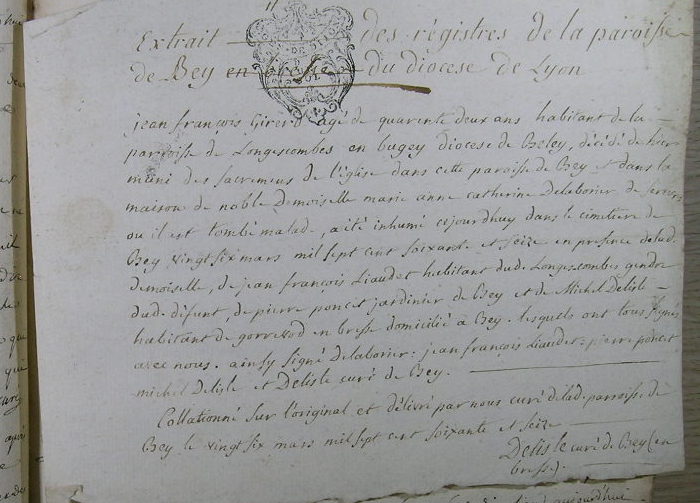 Extrait des régistres de la paroisse
de Bey en bresse du diocese de Lyon
jean françois Girerd agé de quarente deux ans habitant de la
parroisse de Longescombes en bugey diocese de Beley, décédé de hier
muni des sacremens de l'église dans cette paroisse de Bey et dans la
maison de noble Demoiselle marie anne catherine Delaborier de
ou il est tombé malade, a été inhumé cejourdhuy dans le cimetière de
Bey vingt six mars mil sept cent soixante et seize en presence de lad.
demoiselle, de jean françois Liaudet habitant dud. Longescombes gendre
dud. défunt, de pierre poncet jardinier de Bey et de Michel Delisle
habitant de gorrevod en bresse domicilié a Bey. lesquels ont tous signés
avec nous. ainsy signé delaborier: jean françois Liaudet: pierre poncet
michel delisle et Delisle curé de Bey.
Collationné sur l'original et délivré par nous curé de lad. paroisse de
Bey le vingt six mars mil sept cent soixante et seize
Delisle curé de Bey (en
bresse).